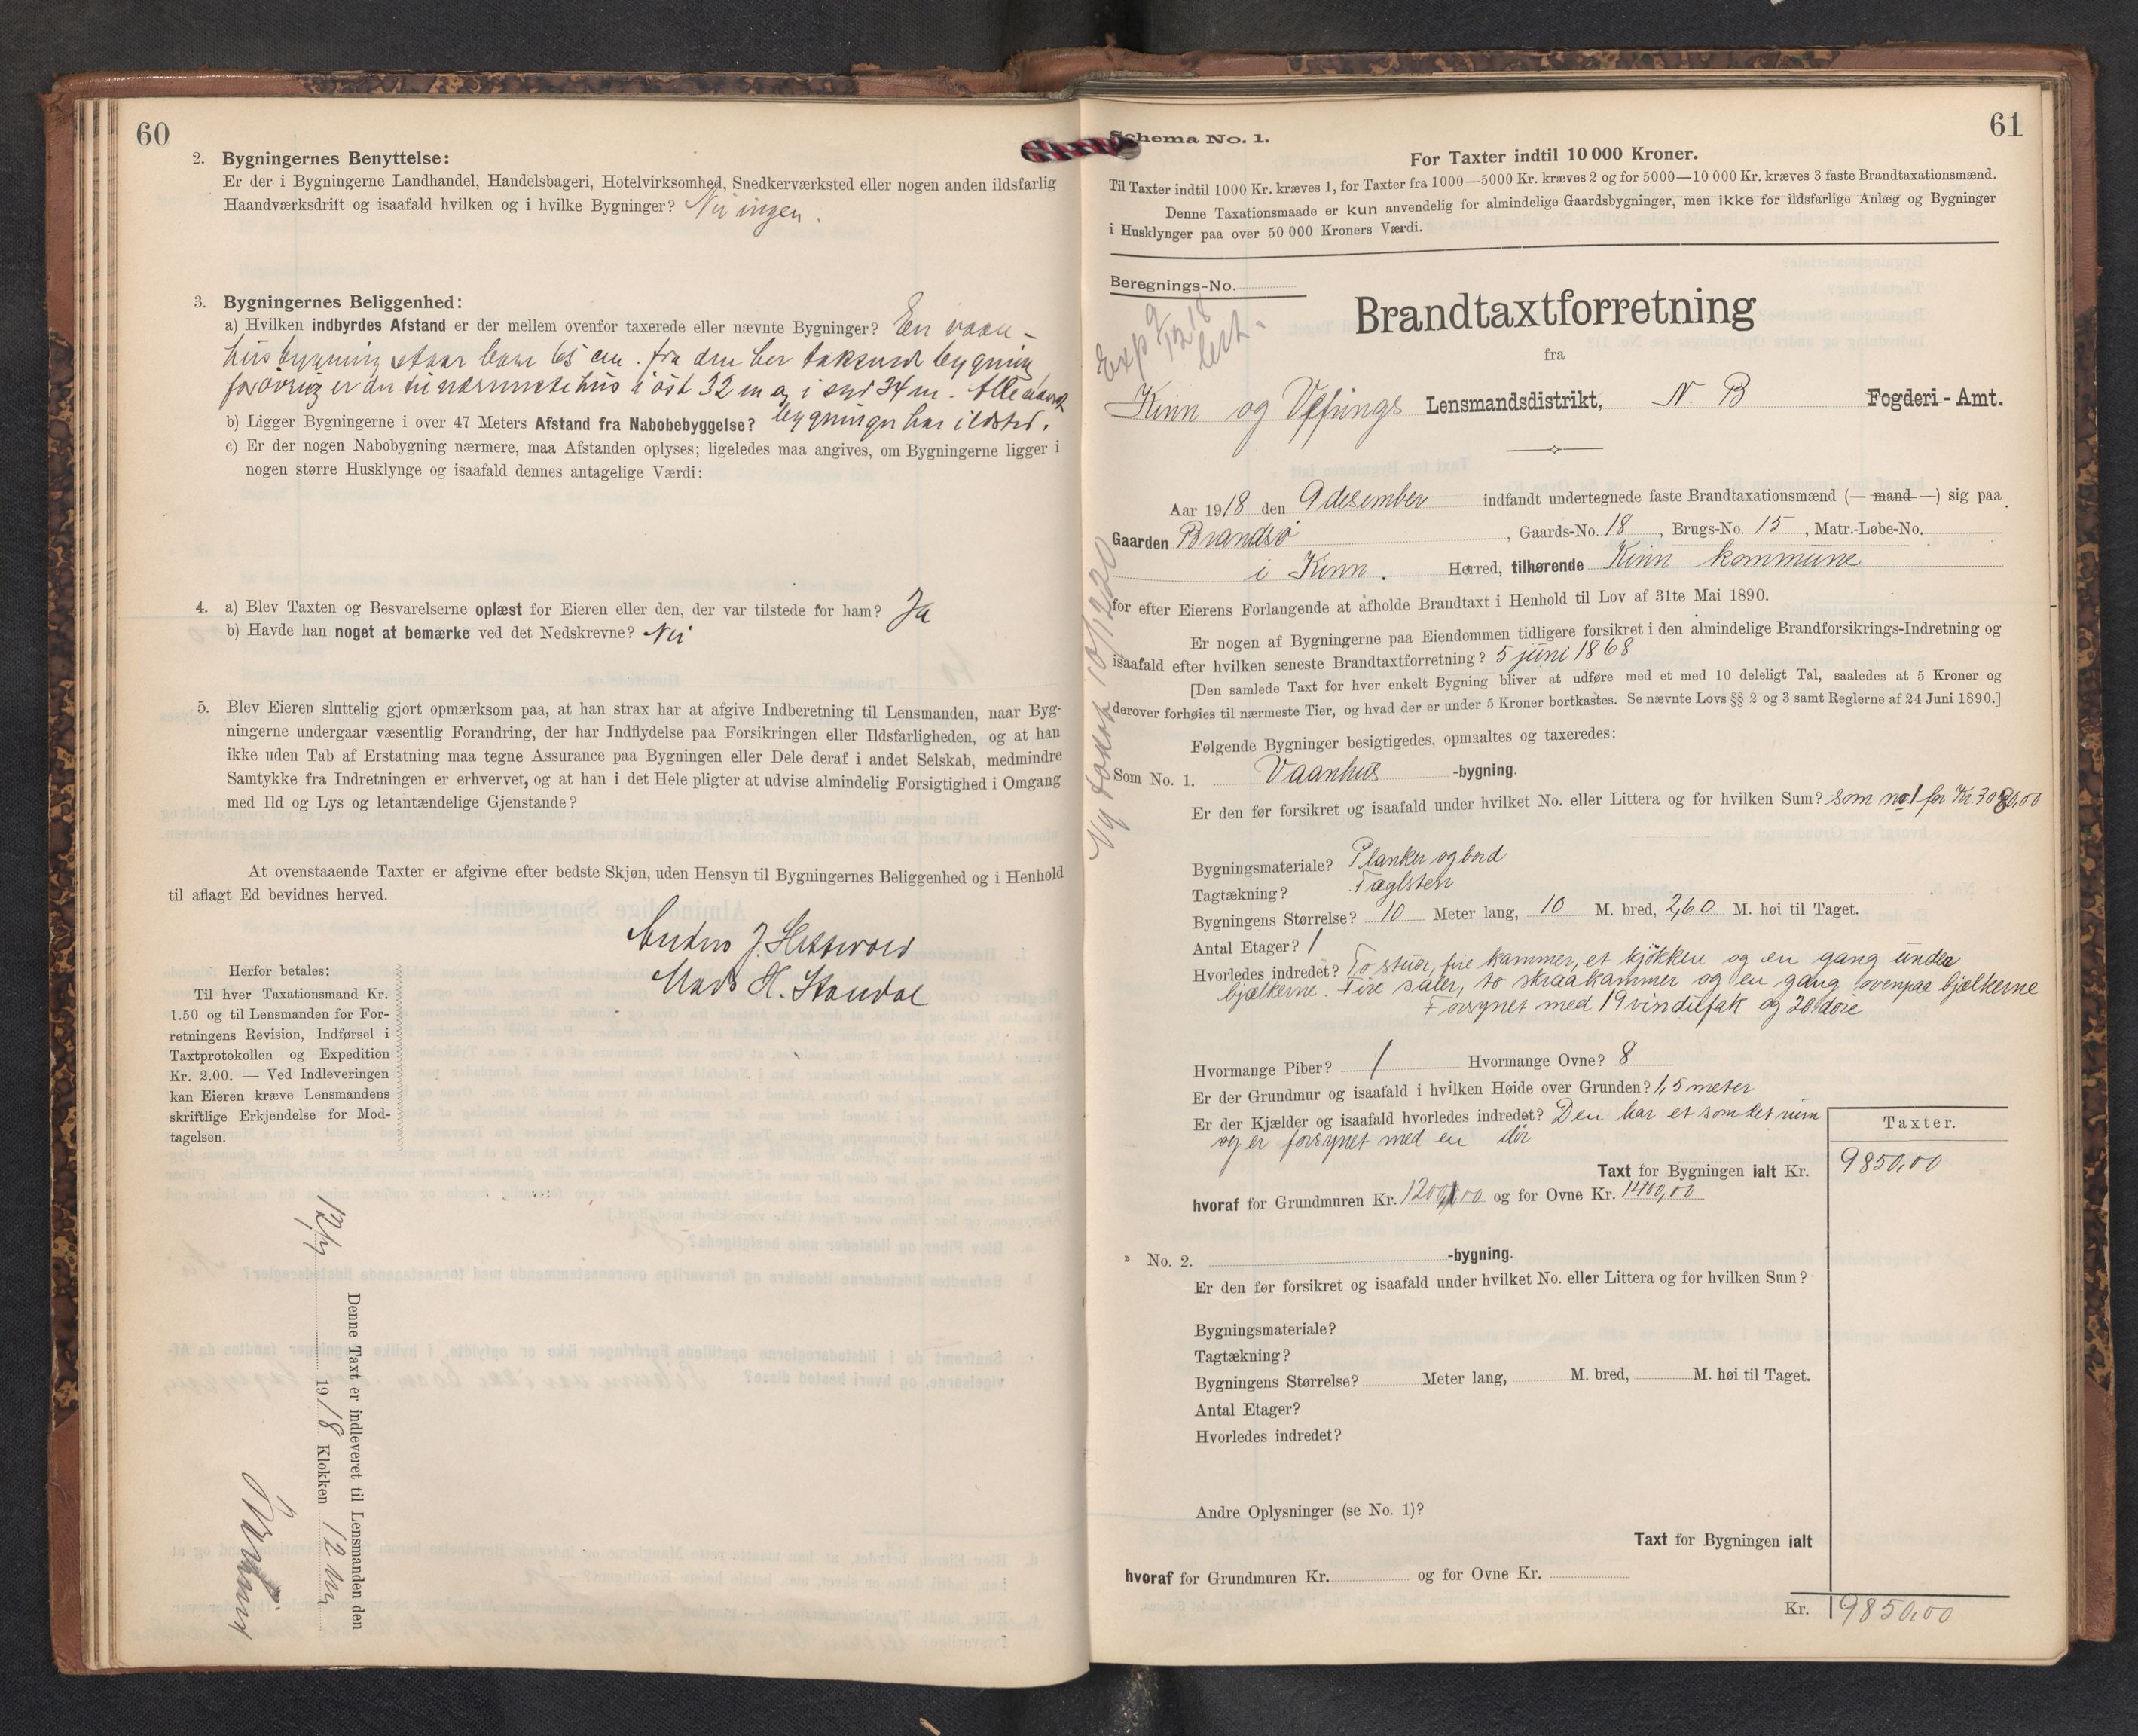 60
2. Bygningernes Benyttelse:
Er der i Bygningerne Landhandel, Handelsbageri, Hotelvirksomhed, Snedkerværksted eller nogen anden ildsfarlig
Haandværksdrift og isaafald hvilken og i hvilke Bygninger? Nei ingen.
3. Bygningernes Beliggenhed:
a) Hvilken indbyrdes Afstand er der mellem ovenfor taxerede eller nævnte Bygninger? En vaan-
husbygning staar bare 65 cm. fra den her taksered bygning
forøvrig er der til nærmeste hus i øst 32 m og i syd 34 m. Alle nævnt
b) Ligger Bygningerne i over 47 Meters Afstand fra Nabobebyggelse? bygninger har ildsted.
c) Er der nogen Nabobygning nærmere, maa Afstanden oplyses; ligeledes maa angives, om Bygningerne ligger i
nogen større Husklynge og isaafald dennes antagelige Værdi:
4. a) Blev Taxten og Besvarelserne oplæst for Eieren eller den, der var tilstede for ham? Ja
b) Havde han noget at bemærke ved det Nedskrevne? Nei
5. Blev Eieren sluttelig gjort opmærksom paa, at han strax har at afgive Indberetning til Lensmanden, naar Byg-
ningerne undergaar væsentlig Forandring, der har Indflydelse paa Forsikringen eller Ildsfarligheden, og at han
ikke uden Tab af Erstatning maa tegne Assurance paa Bygningen eller Dele deraf i andet Selskab, medmindre
Samtykke fra Indretningen er erhvervet, og at han i det Hele pligter at udvise almindelig Forsigtighed i Omgang
med Ild og Lys og letantændelige Gjenstande?
At ovenstaaende Taxter er afgivne efter bedste Skjøn, uden Hensyn til Bygningernes Beliggenhed og i Henhold
til aflagt Ed bevidnes herved.
Anders J.
Mads H. Standal
Herfor betales:
Til hver Taxationsmand Kr.
1.50 og til Lensmanden for For-
retningens Revision, Indførsel i
Taxtprotokollen og Expedition
Kr. 2.00. — Ved Indleveringen
kan Eieren kræve Lensmandens
skriftlige Erkjendelse for Mod-
tagelsen.
Denne Taxt er indleveret til Lensmanden den
1918 Klokken 12
61
Schema No. 1.
For Taxter indtil 10 000 Kroner.
Til Taxter indtil 1000 Kr. kræves 1, for Taxter fra 1000—5000 Kr. kræves 2 og for 5000—10 000 Kr. kræves 3 faste Brandtaxationsmænd.
Denne Taxationsmaade er kun anvendelig for almindelige Gaardsbygninger, men ikke for ildsfarlige Anlæg og Bygninger
i Husklynger paa over 50 000 Kroners Værdi.
Beregnings-No.
Exp 9/12 18
Brandtaxtforretning
fra
Kinn og Vefrings Lensmandsdistrikt, N. B Fogderi-Amt.
Aar 1918 den 9 desember indfandt undertegnede faste Brandtaxationsmænd (— mand —) sig paa
Gaarden Brandsø, Gaards-No. 18, Brugs-No. 15, Matr.-Løbe-No.
i Kinn. Herred, tilhørende Kinn kommune
for efter Eierens Forlangende at afholde Brandtaxt i Henhold til Lov af 31te Mai 1890.
Er nogen af Bygningerne paa Eiendommen tidligere forsikret i den almindelige Brandforsikrings-Indretning og
isaafald efter hvilken seneste Brandtaxtforretning? 5 juni 1868
[Den samlede Taxt for hver enkelt Bygning bliver at udføre med et med 10 deleligt Tal, saaledes at 5 Kroner og
derover forhøies til nærmeste Tier, og hvad der er under 5 Kroner bortkastes. Se nævnte Lovs §§ 2 og 3 samt Reglerne af 24 Juni 1890.]
Ny takst 10/12 20
Følgende Bygninger besigtigedes, opmaaltes og taxeredes:
Som No. 1. Vaanhus -bygning.
Er den før forsikret og isaafald under hvilket No. eller Littera og for hvilken Sum? Som no 1 for Kr.
Bygningsmateriale? Planker og bord
Tagtækning? Taglsten
Bygningens Størrelse? 10 Meter lang, 10 M. bred, 2,60 M. høi til Taget.
Antal Etager? 1
Hvorledes indredet? To stuer, fire kammer, et kjøkken og en gang under
bjælkerne. Fire saler, to skraakammer og en gang ovenpaa bjælkerne
Forsynet med 19 vinduefak og 20 døre
Hvormange Piber? 1 Hvormange Ovne? 8
Er der Grundmur og isaafald i hvilken Høide over Grunden? 1,5 meter
Er der Kjælder og isaafald hvorledes indredet? Den har et som det rum
og er forsynet med en dør
Taxter.
Taxt for Bygningen ialt Kr. 9850,00
hvoraf for Grundmuren Kr. 1200,00 og for Ovne Kr. 1400,00
» No. 2. -bygning.
Er den før forsikret og isaafald under hvilket No. eller Littera og for hvilken Sum?
Bygningsmateriale?
Tagtækning?
Bygningens Størrelse? Meter lang, M. bred, M. høi til Taget.
Antal Etager?
Hvorledes indredet?
Andre Oplysninger (se No. 1)?
Taxt for Bygningen ialt
hvoraf for Grundmuren Kr. og for Ovne Kr.
Kr. 9850,00